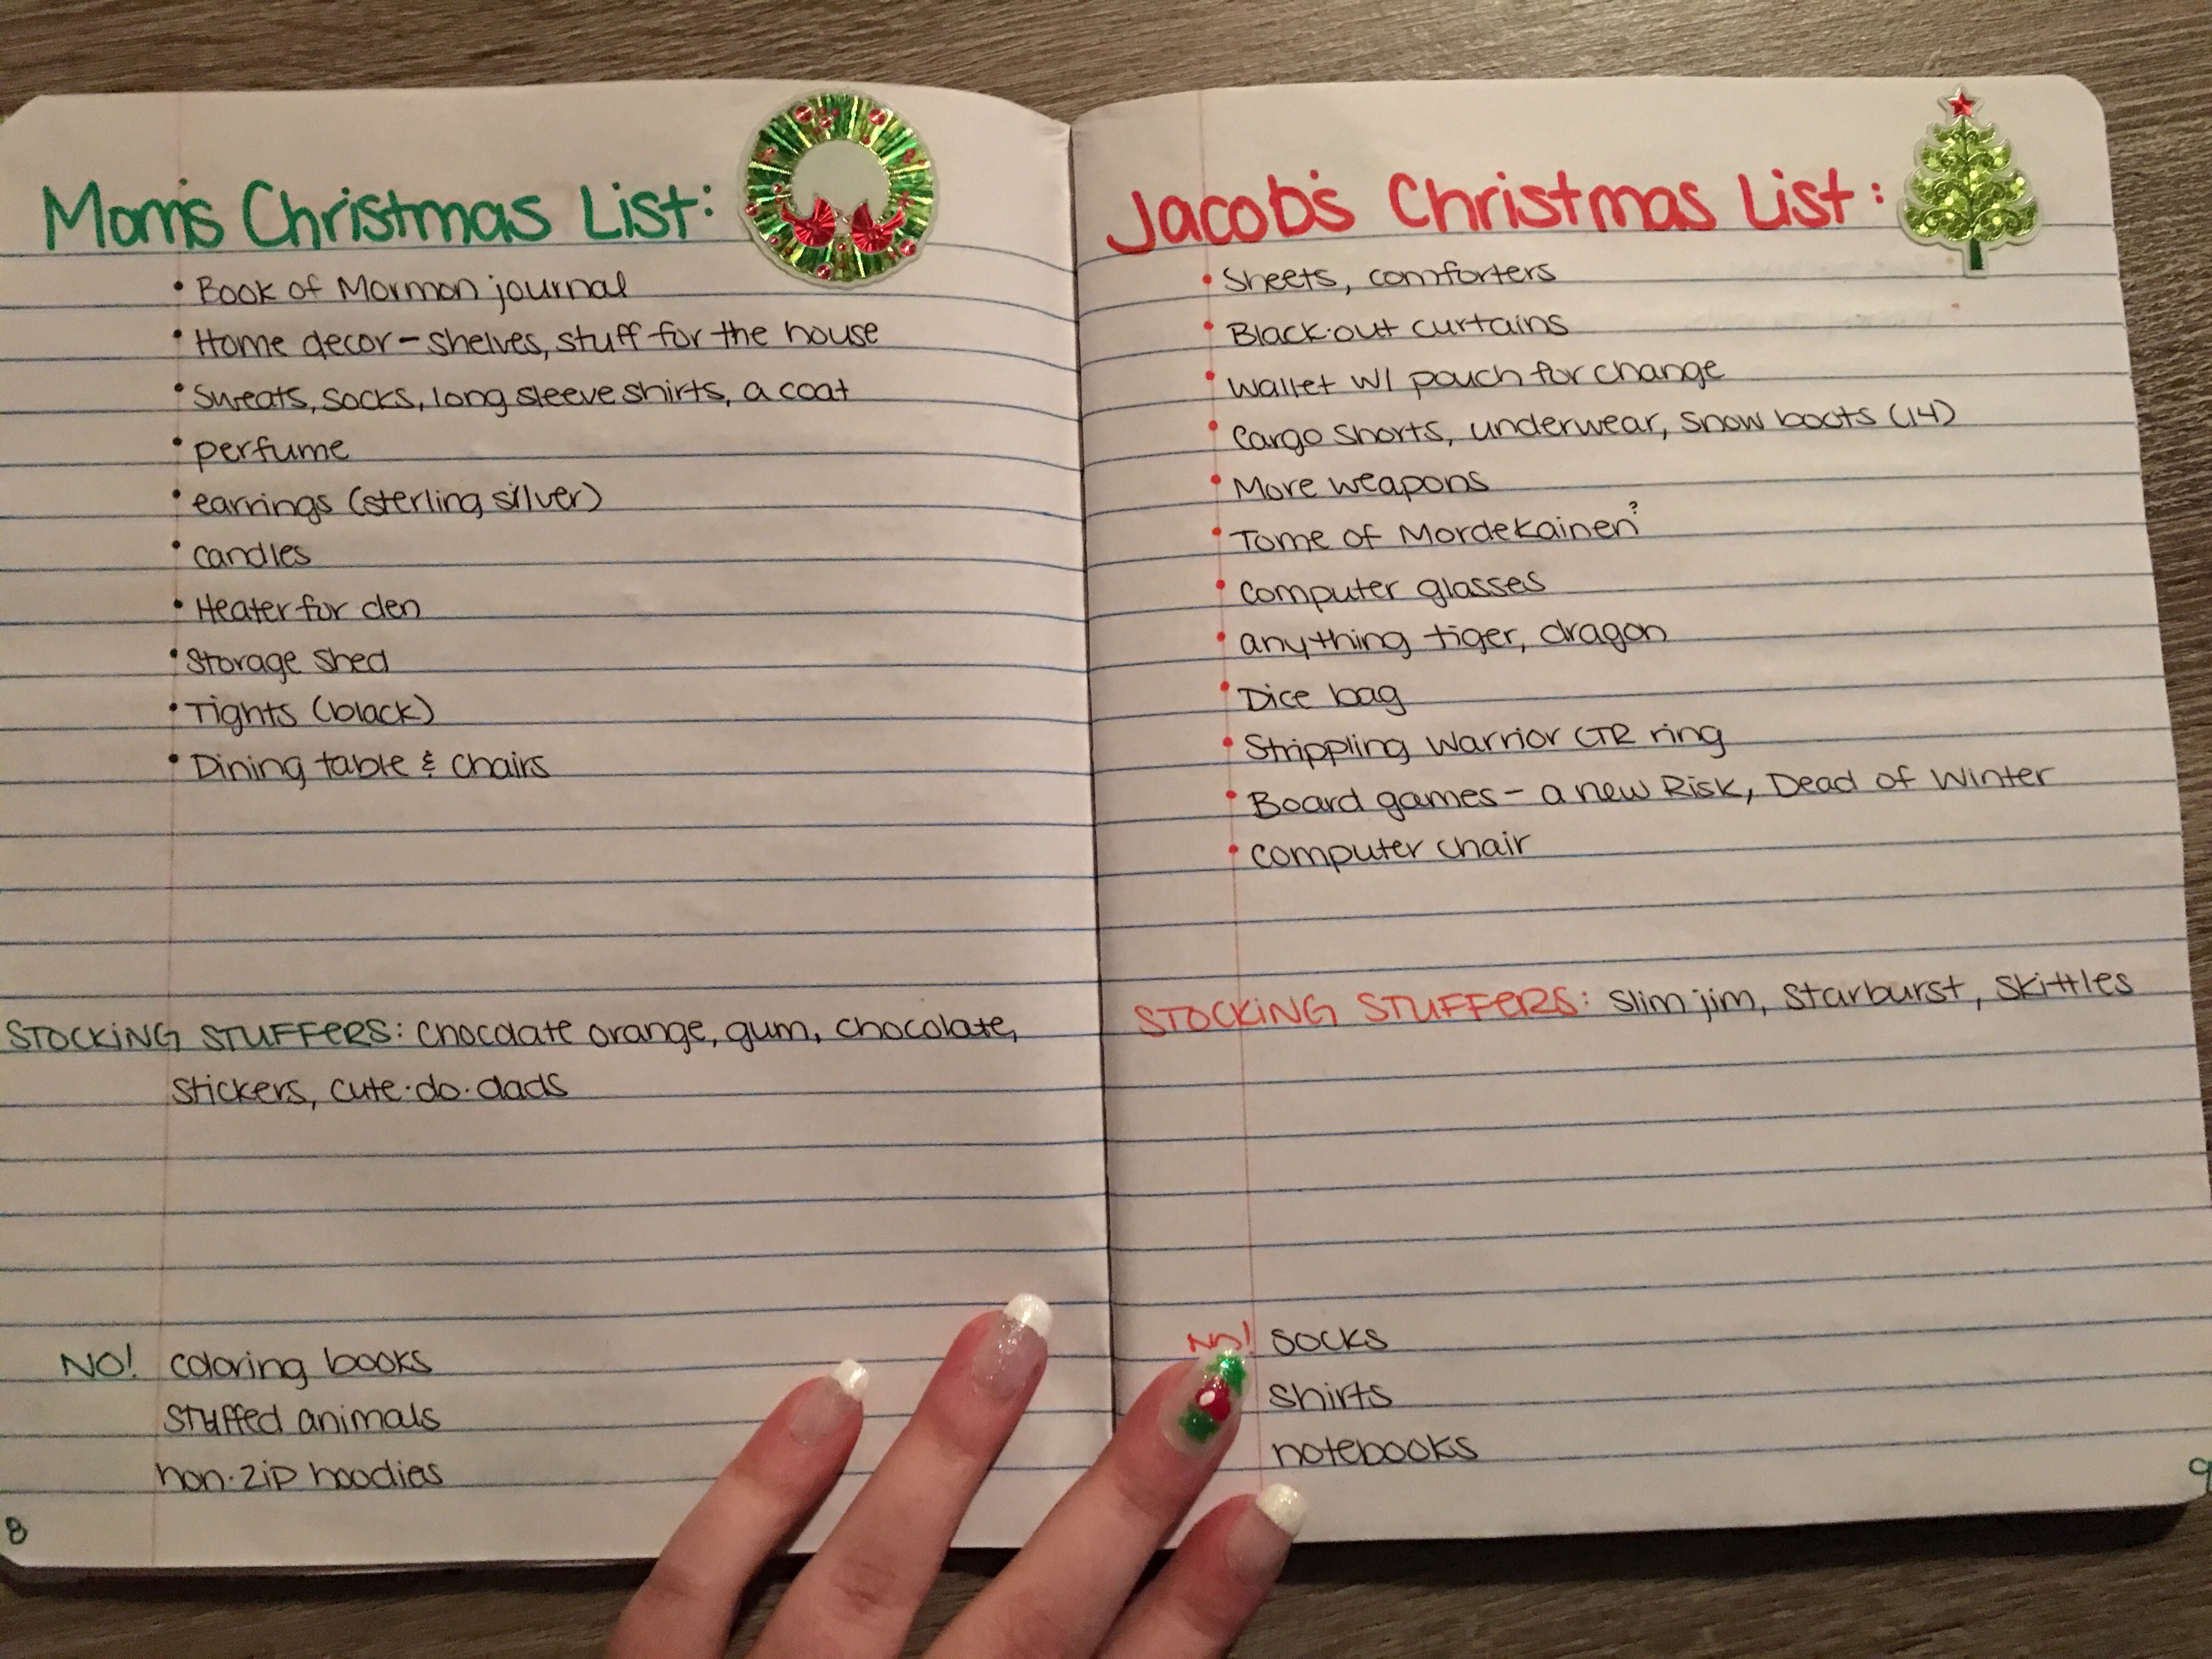 Mom's Christmas List:
• Book of Mormon journal
• Home decor - shelves, stuff for the house
• Sweats, socks, long sleeve shirts, a coat
• perfume
• earrings (sterling silver)
• candles
• Heater for den
• Storage shed
• Tights (black)
• Dining table & chairs
STOCKING STUFFERS: chocolate orange, gum, chocolate,
stickers, cute·do·dads
NO! coloring books
stuffed animals
non-zip hoodies
8
Jacob's Christmas List:
• Sheets, comforters
• Black-out curtains
• Wallet w/ pouch for change
• Cargo shorts, underwear, snow boots (14)
• More weapons
• Tome of Mordekainen?
• Computer glasses
• anything tiger, dragon
• Dice bag
• Strippling Warrior CTR ring
• Board games - a new Risk, Dead of Winter
• computer chair
STOCKING STUFFERS: Slim jim, Starburst, Skittles
NO! socks
shirts
notebooks
9